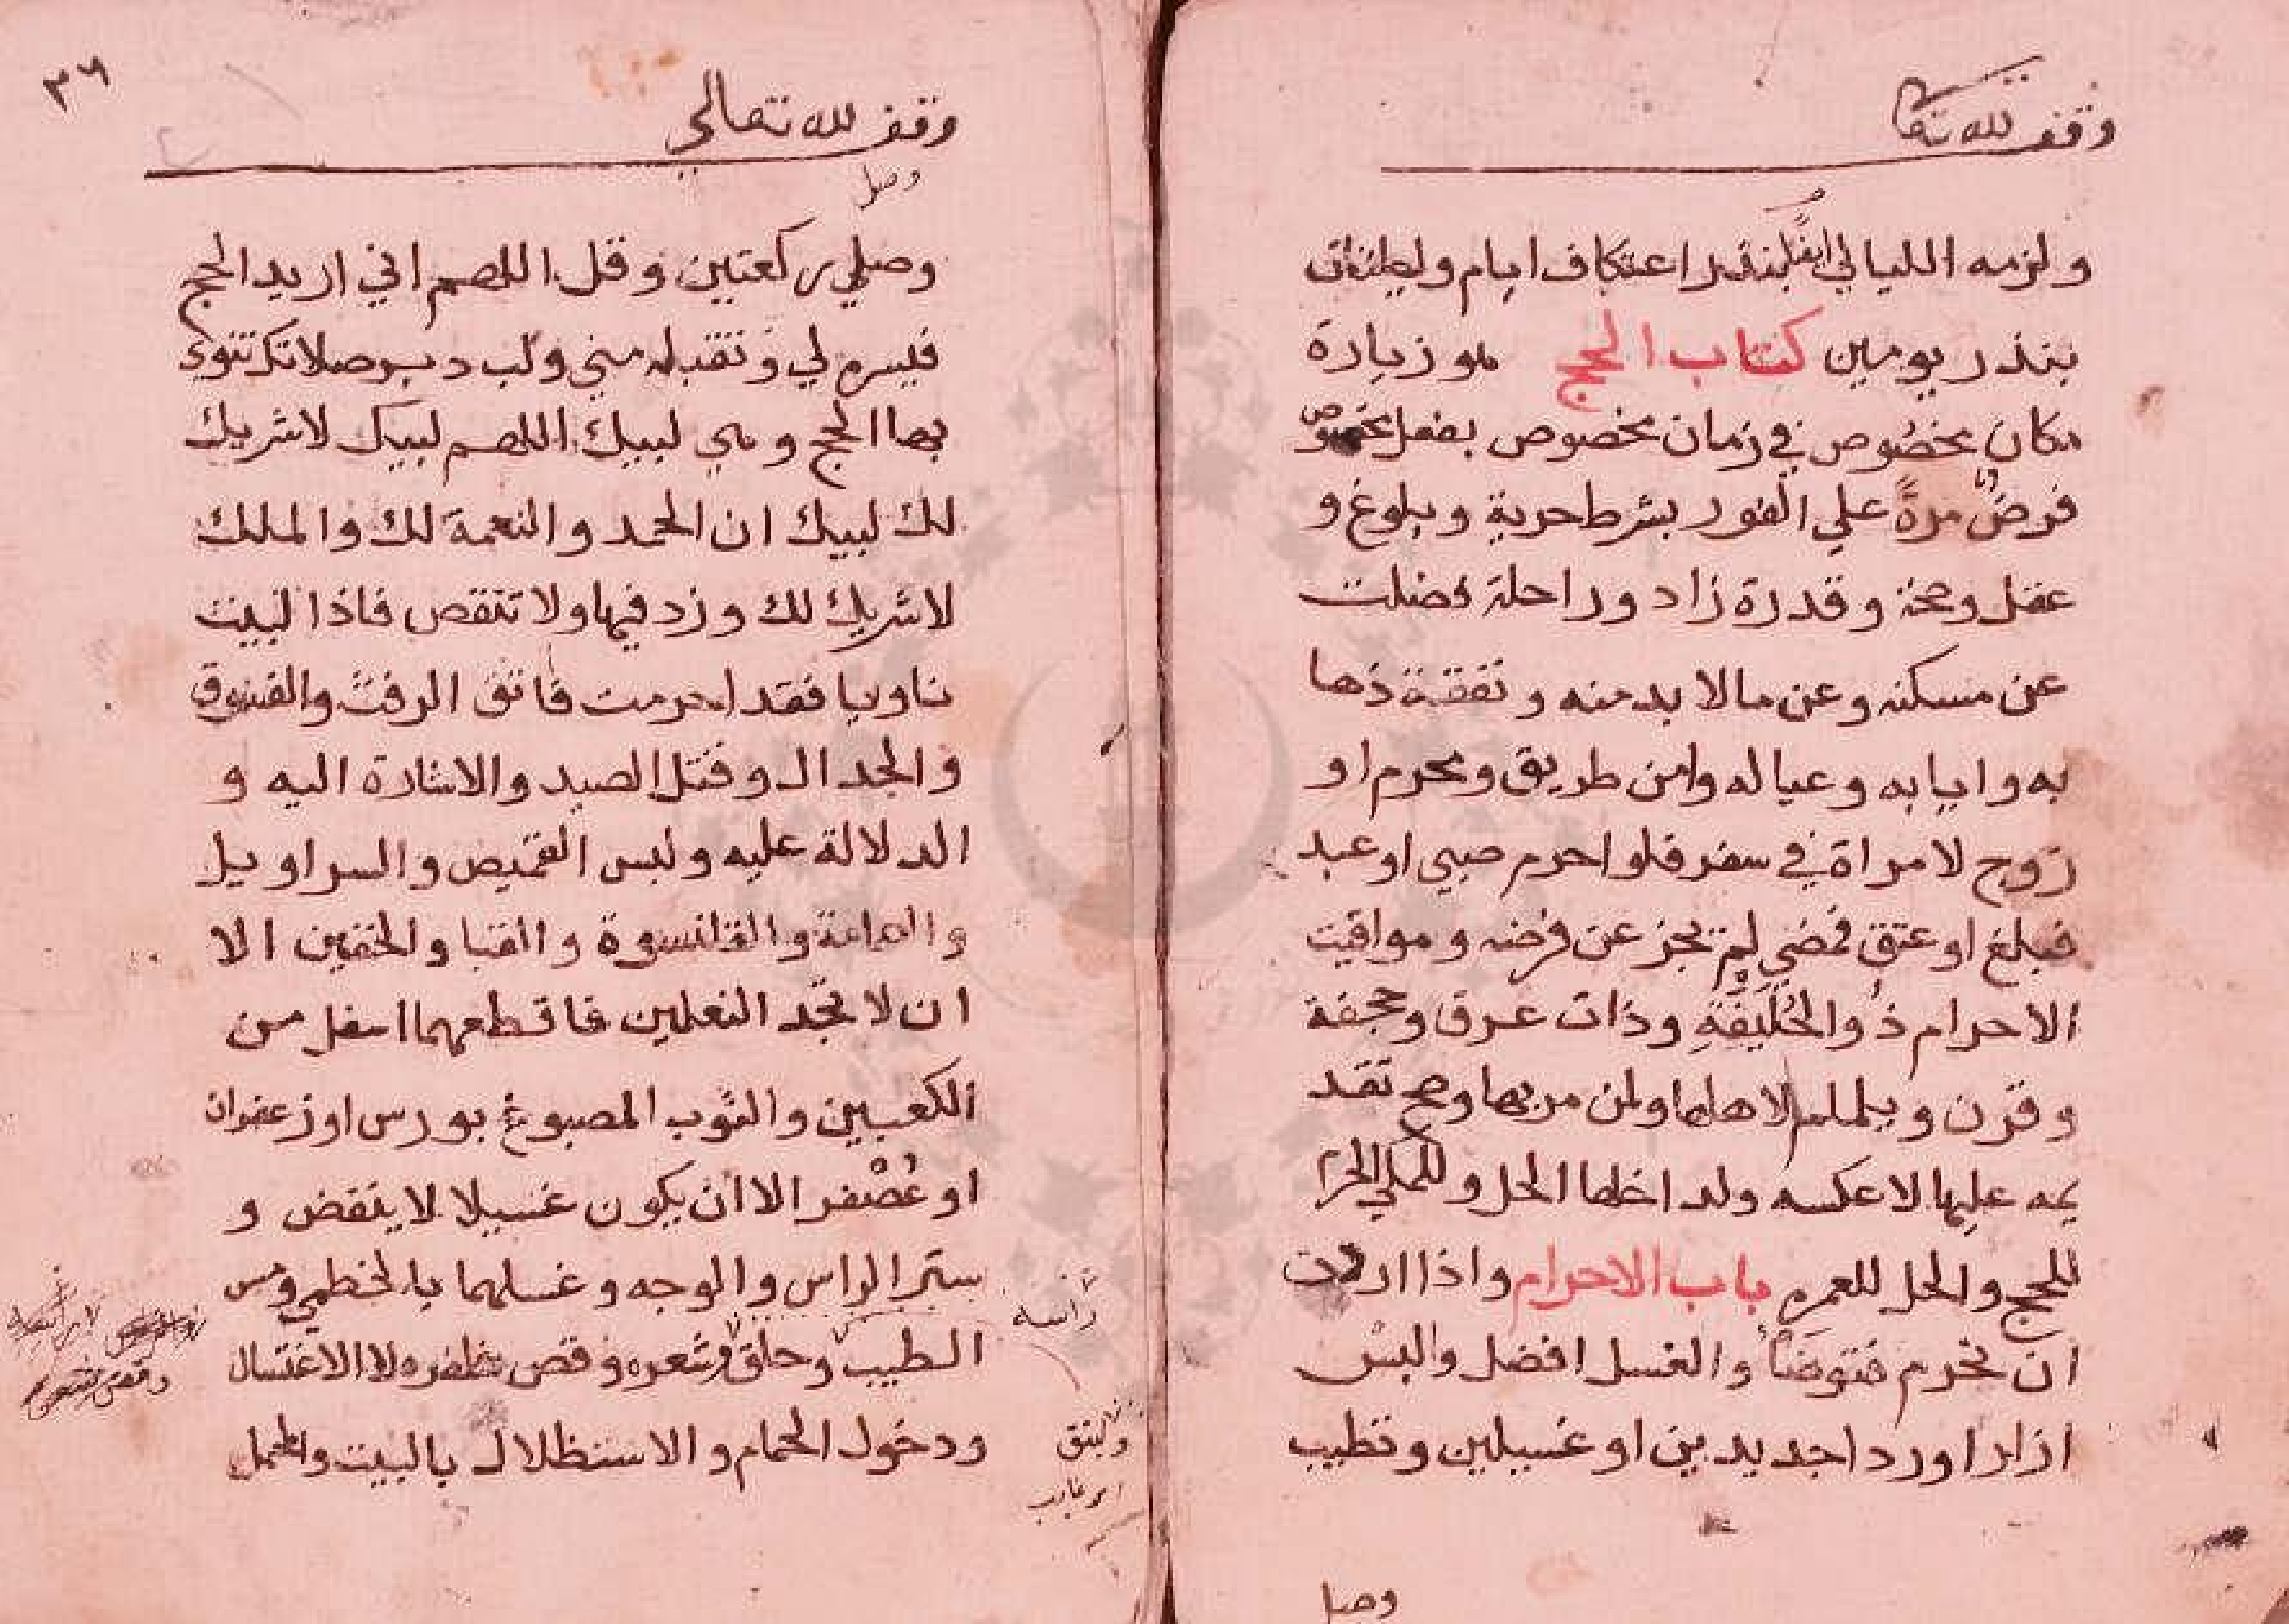 وقف لله تعا
ولزمه الليالي ايضا بنذر اعتكاف ايام وليلتان
بنذر يومين كتاب الحج هو زيارة
مكان مخصوص في زمان مخصوص بفعل مخصوص
فرض مرةً علي الفور بشرط حرية وبلوغ و
عقل وصحة وقدرة زاد وراحلة فضلت
عن مسكنه وعن مالا بد منه ونفقة ذها
به وايابه وعياله وامن طريق ومحرم او
زوج لامراة في سفر فلو احرم صبي او عبد
فبلغ او عتق فمضي لم يجز عن فرضه ومواقيت
الاحرام ذُو الحُلَيفَةِ وذات عرق وجحفة
وقرن ويلملم لاهلها ولمن مر بها وصح تقد
يمه عليها لا عكسه ولداخلها الحل وللمكي الحرم
للحج والحل للعمرة باب الاحرام واذا اردت
ان تحرم فتوضأ والغسل افضل والبس
ازارا وردا جديدين او غسيلين وتطيب
وصل
٣٦
وقف لله تعالي
وصل
وصلي ركعتين وقل اللهم اني اريد الحج
فيسره لي وتقبله مني ولب دبر صلاتك تنوي
بها الحج وهي لبيك اللهم لبيك لا شريك
لك لبيك ان الحمد والنعمة لك والملك
لا شريك لك وزد فيها ولا تنقص فاذا لبيت
ناويا فقد احرمت فاتق الرفث والفسوق
والجدال وقتل الصيد والاشارة اليه و
الدلالة عليه ولبس القميص والسراويل
والعمامة والقلنسوة والقبا والخفين الا
ان لا تجد النعلين فاقطعهما اسفل من
الكعبين والثوب المصبوغ بورس او زعفران
او عُصْفر الا ان يكون غسيلا لا ينقض و
ستر الراس والوجه وغسلهما بالخطمي ومس
الطيب وحلق شعره وقص ظفره لا الاغتسال
ودخول الحمام والاستظلال بالبيت والمحمل
راسه